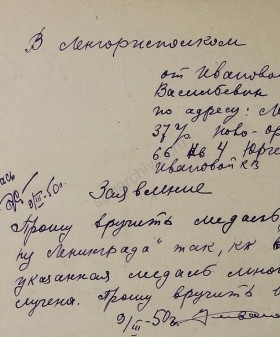 В Ленгорисполком
от Ивановой
Васильевны
по адресу: Ле
37 Ново-Ор
66 кв 4
Ивановой К В
9/III-50г.
Заявление
Прошу вручить медаль
ну Ленинграда" так, как
указанная медаль мно
лучена. Прошу вручить
9/III-50г.